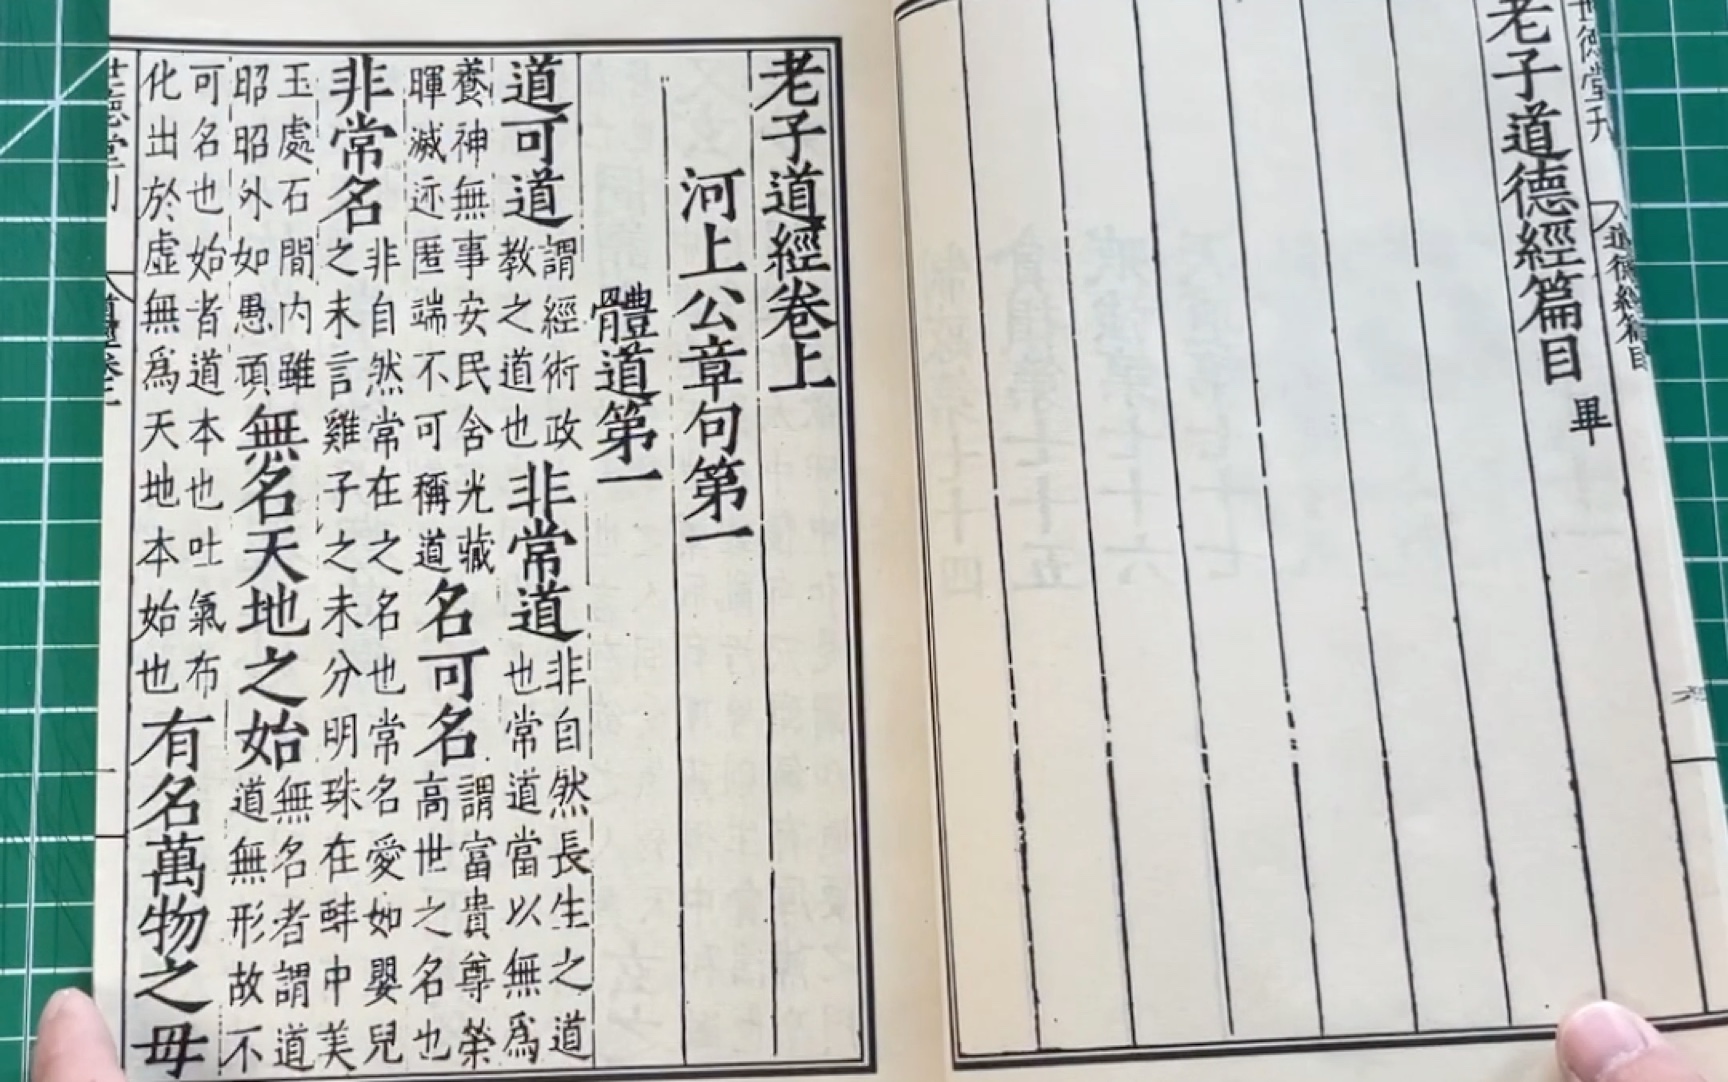 世德堂刊 道德經篇目
老子道德經篇目 畢
老子道經卷上
河上公章句第一
體道第一
道可道謂經術政教之道也非常道非自然長生之道也常道當以無爲
養神無事安民含光藏暉滅迹匿端不可稱道名可名謂富貴尊榮高世之名也
非常名非自然常在之名也常名愛如嬰兒之未言雞子之未分明珠在蚌中美
玉處石間内雖昭昭外如愚頑無名天地之始無名者謂道道無形故不
可名也始者道本也吐氣布化出於虛無爲天地本始也有名萬物之母